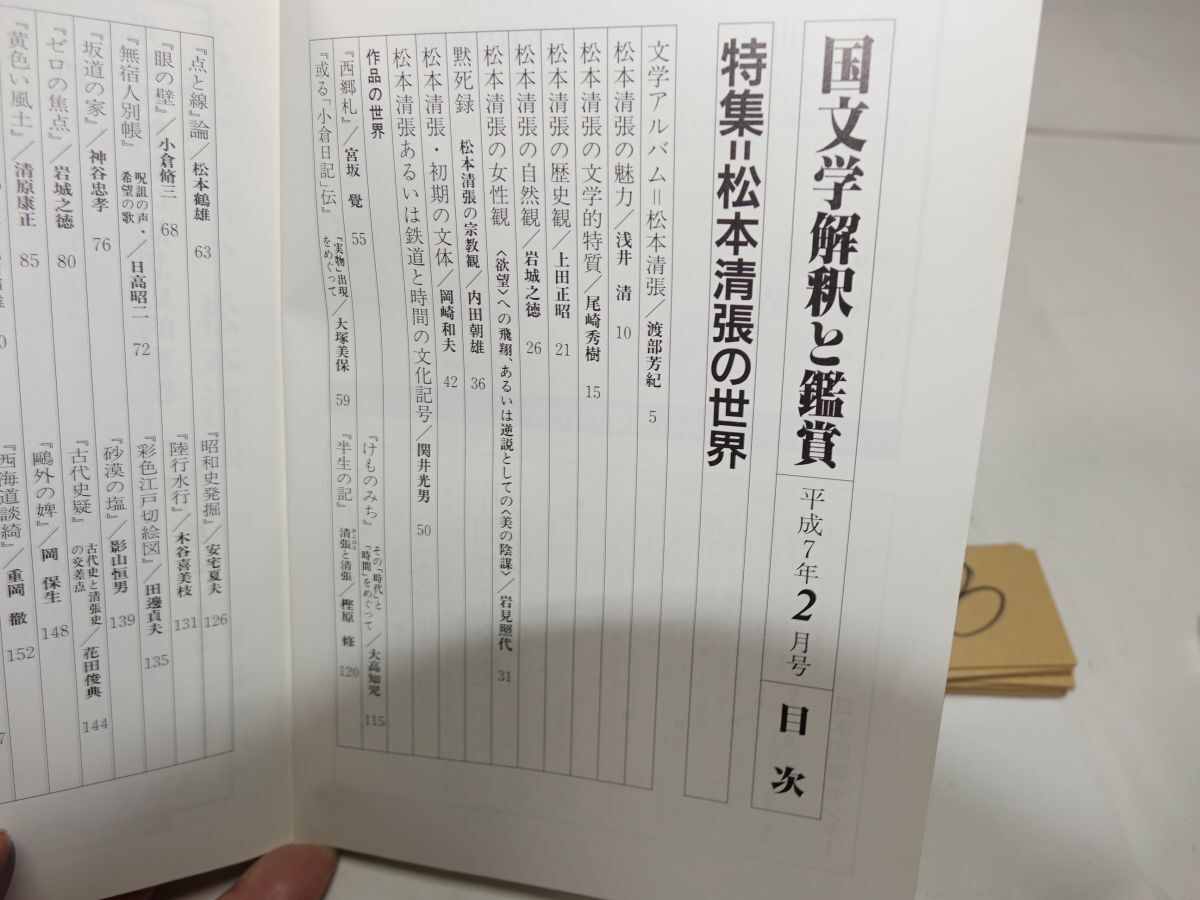 国文学解釈と鑑賞 平成7年2月号 目次
特集=松本清張の世界
文学アルバム=松本清張/渡部芳紀 5
松本清張の魅力/浅井 清 10
松本清張の文学的特質/尾崎秀樹 15
松本清張の歴史観/上田正昭 21
松本清張の自然観/岩城之徳 26
松本清張の女性観 〈欲望〉への飛翔、あるいは逆説としての〈美の陰謀〉/岩見照代 31
黙死録 松本清張の宗教観/内田朝雄 36
松本清張・初期の文体/岡崎和夫 42
松本清張あるいは鉄道と時間の文化記号/関井光男 50
作品の世界
『西郷札』/宮坂 覺 55
『或る「小倉日記」伝』 「実物」出現をめぐって/大塚美保 59
『けものみち』 その「時代」と「時間」をめぐって/大高知児 115
『半生の記』 清張と清張/樫原 修 120
『点と線』論/松本鶴雄 63
『眼の壁』/小倉脩三 68
『無宿人別帳』 呪詛の声・希望の歌/日高昭二 72
『坂道の家』/神谷忠孝 76
『ゼロの焦点』/岩城之徳 80
『黄色い風土』/清原康正 85
『昭和史発掘』/安宅夏夫 126
『陸行水行』/木谷喜美枝 131
『彩色江戸切絵図』/田邊貞夫 135
『砂漠の塩』/影山恒男 139
『古代史疑』 古代史と清張史の交差点/花田俊典 144
『鷗外の婢』/岡 保生 148
『西海道談綺』/重岡 徹 152